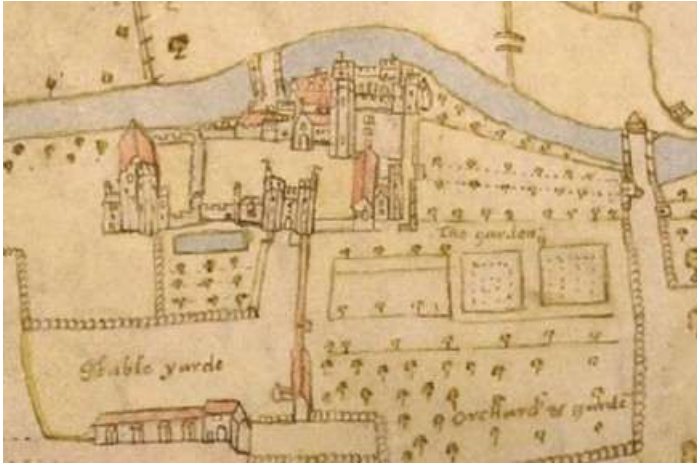 The garden
Stable yarde
Orchard